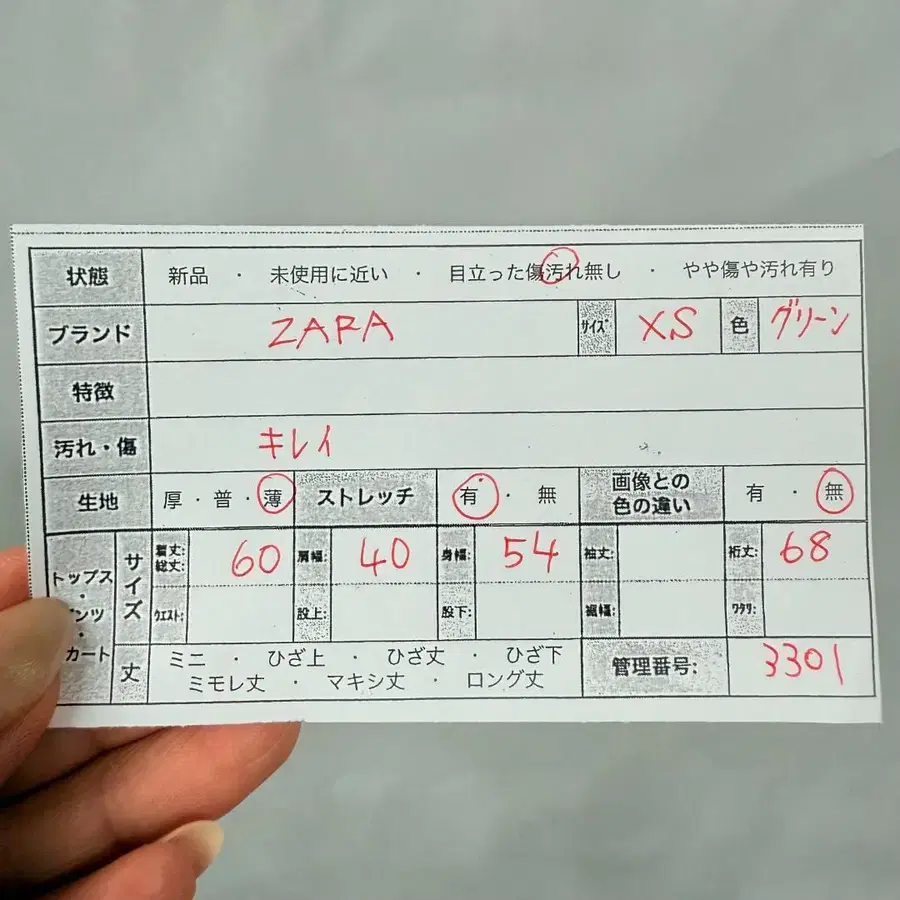 状態 新品 ・ 未使用に近い ・ 目立った傷汚れ無し ・ やや傷や汚れ有り
ブランド ZARA サイズ XS 色 グリーン
特徴
汚れ・傷 キレイ
生地 厚・普・薄 ストレッチ 有・無 画像との色の違い 有・無
トップス・ンツ・カート サイズ 着丈:総丈: 60 肩幅: 40 身幅: 54 袖丈: 裄丈: 68
ウエスト: 股上: 股下: 裾幅: ワタリ:
丈 ミニ ・ ひざ上 ・ ひざ丈 ・ ひざ下
ミモレ丈 ・ マキシ丈 ・ ロング丈 管理番号: 3301